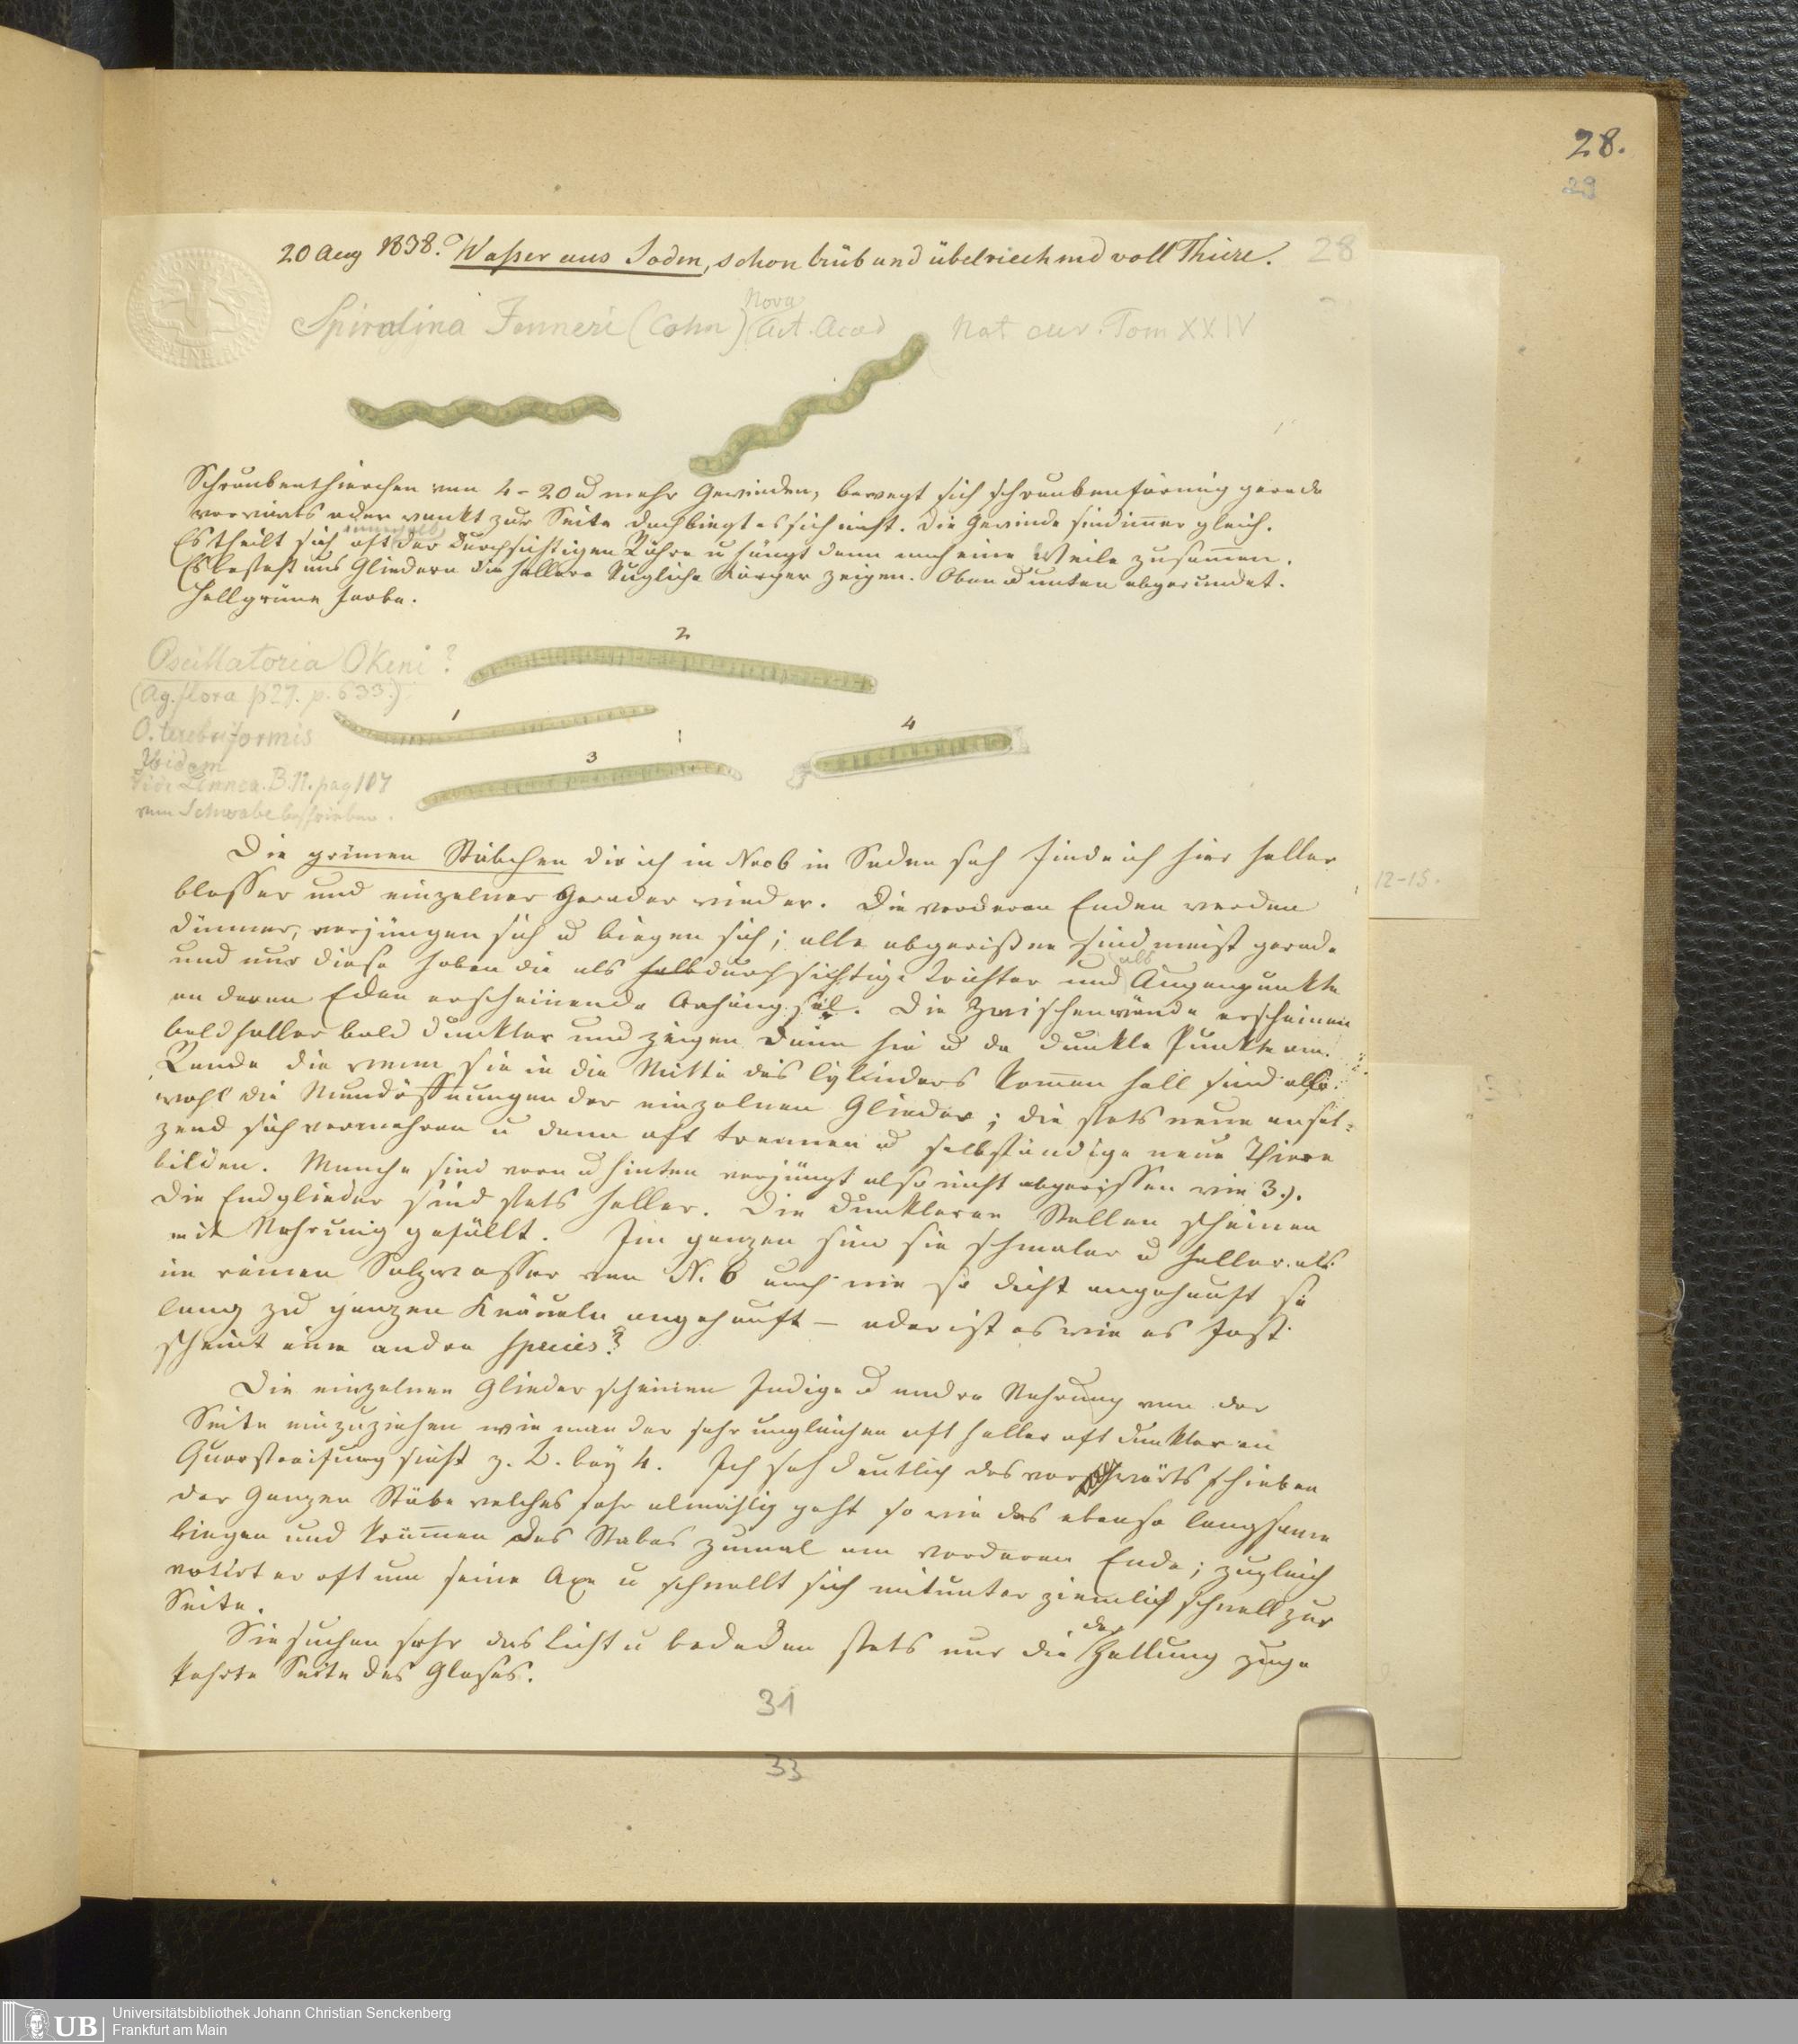 28.
29
20 Aug 1838. Waßer aus Soden, schon trüb und übelriechend voll Thiere.
28
Nova
Spirulina Jenneri (Cohn) Act. Acad Nat cur. Tom XXIV
Schraubenthierchen von 4-20 u mehr Gewinden, bewegt sich schraubenförmig gerade
vorwärts oder rückt zur Seite doch biegt es sich nicht. Die Gewinde sind immer gleich.
innerhalb
Es theilt sich oft der durchsichtigen Röhre u hängt dann noch eine Weile zusammen.
Es besteht aus Gliedern die hellere Kuglige Körper zeigen. Oben u unten abgerundet.
Hellgrüne Farbe.
2
Oscillatoria Okeni ?
(Ag. flora p27. p. 633.)
1
O. terebriformis
4
Ibidem
3
Vide Linnea. B. 11. pag 107
von Schwabe beschrieben.
Die grünen Stäbchen die ich in No 6 in Soden sah finde ich hier heller
12-15.
blasser und einzelner gerader wieder. Die vorderen Enden werden
dünner, verjüngen sich u biegen sich; alle abgerißne sind meist gerade
als
und nur diese haben die als halbdurchsichtige Trichter und Augenpunkte
an deren Eden erscheinende Anhängsel. Die Zwischenwände erscheinen
bald heller bald dunkler und zeigen dann hie u da dunkle Punkte am
Rande die wenn sie in die Mitte des Cylinders kommen hell sind also
wohl die Mundöffnungen der einzelnen Glieder; die stets neue anset=
zend sich vermehren u dann oft trennen u selbständige neue Thiere
bilden. Manche sind vorn u hinten verjüngt also nicht abgerissen wie 3.).
Die Endglieder sind stets heller. Die dunkleren Stellen scheinen
mit Nahrung gefüllt. Im ganzen sind sie schmaler u heller als
im reinen Salzwasser von N. 6 auch nie so dicht angehäuft so
lang zu ganzen Knäueln angehäuft — oder ist es wie es fast
scheint eine andre Species?
Die einzelnen Glieder scheinen Indigo u andre Nahrung von der
Seite einzuziehen wie man der sehr ungleichen oft heller oft dunkleren
Querstreifung sieht z. B. bey 4. Ich sah deutlich das vorwärts schieben
der Ganzen Stäbe welches sehr almählig geht so wie das ebenso langsame
biegen und krümmen des Stabes zumal am vorderen Ende; zugleich
rotirt er oft um seine Axe u schnellt sich mitunter ziemlich schnell zur
Seite.
der
Sie suchen sehr das Licht u bedecken stets nur die Hellung zuge
kehrte Seite des Glases.
31
33
UB
Universitätsbibliothek Johann Christian Senckenberg
Frankfurt am Main